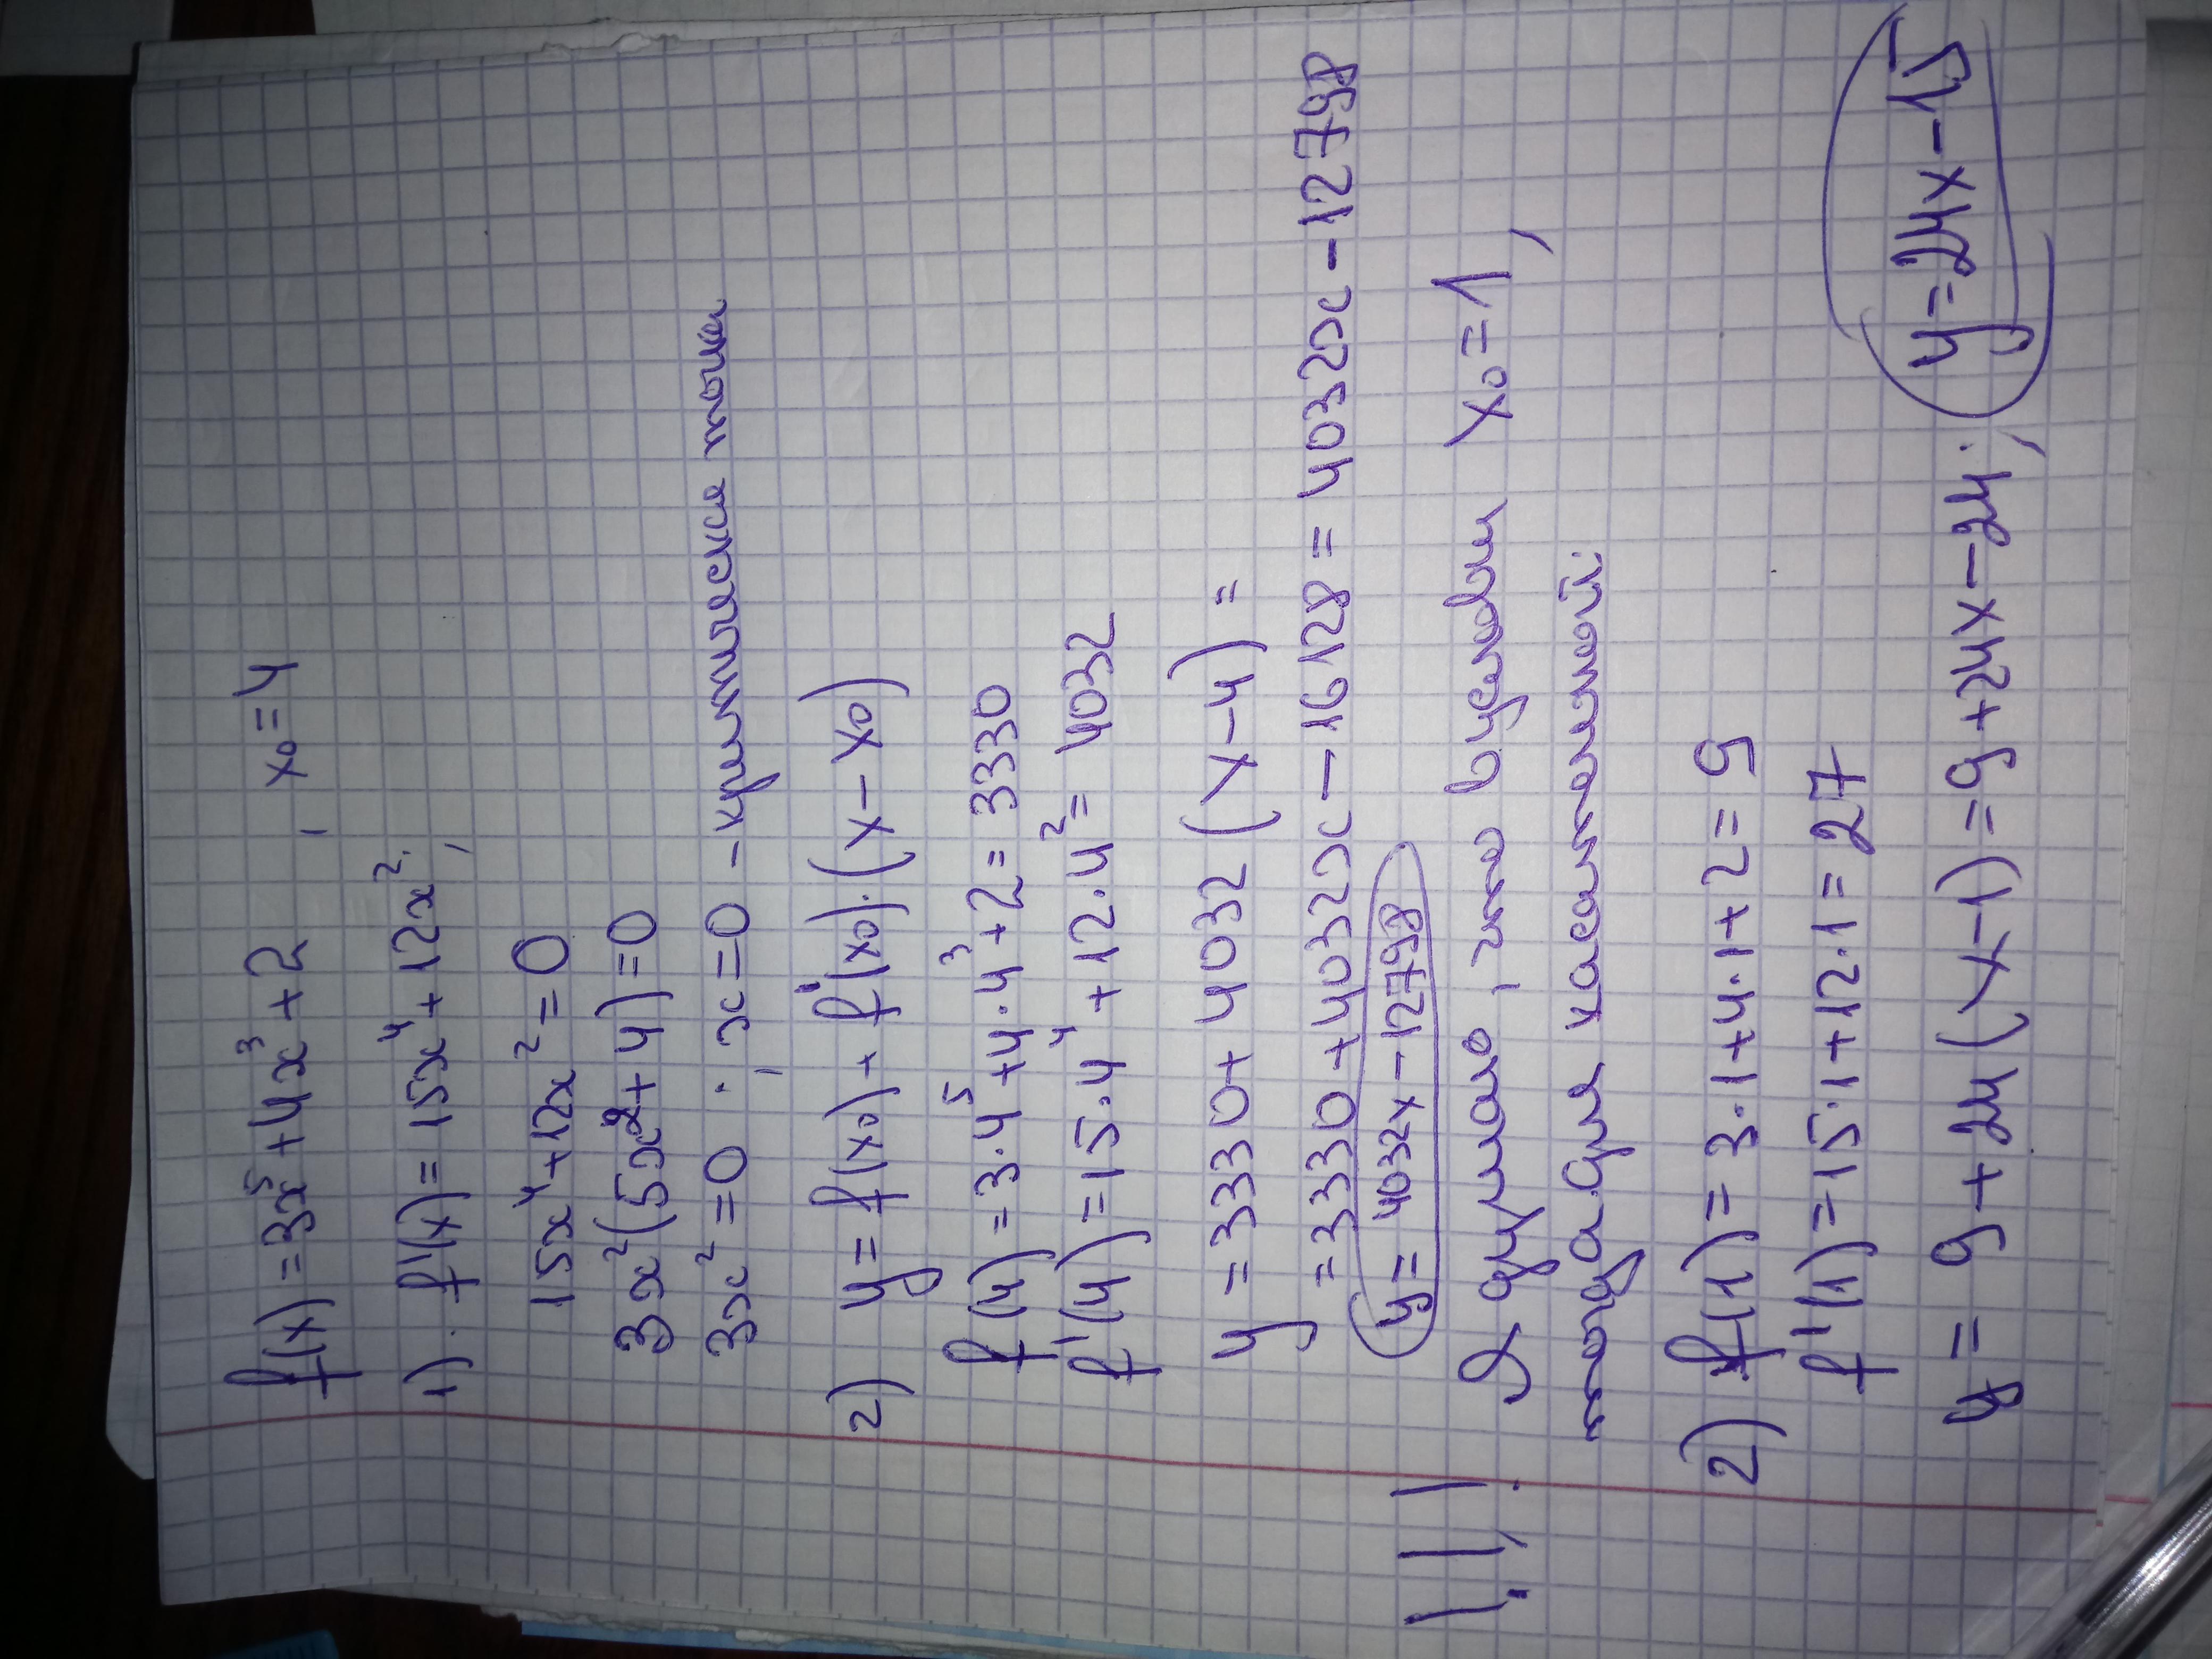 f(x) = 3x⁵ + 4x³ + 2 , x₀ = 4
1). f'(x) = 15x⁴ + 12x²;
15x⁴ + 12x² = 0
3x²(5x² + 4) = 0
3x² = 0 ; x = 0 - критическая точка
2) y = f(x₀) + f'(x₀)·(x - x₀)
f(4) = 3·4⁵ + 4·4³ + 2 = 3330
f'(4) = 15·4⁴ + 12·4² = 4032
y = 3330 + 4032 (x - 4) =
= 3330 + 4032x - 16128 = 4032x - 12798
y = 4032x - 12798
!!! Я думаю, что вторую x₀ = 1,
2) f(1) = 3·1 + 4·1 + 2 = 9
f'(1) = 15·1 + 12·1 = 27
y = 9 + 24 (x - 1) = 9 + 24x - 24; y = 24x - 15